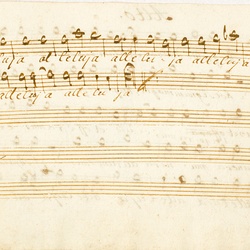 luja alleluja allelu ja alleluja
alleluja allelu ja